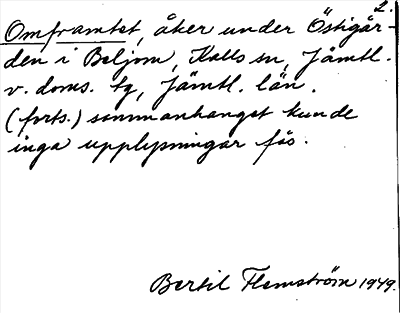 2.
Omframtet, åker under Östigår-
den i Beljom, Kalls sn, Jämtl.
v. doms. tg, Jämtl. län.
(forts.) sammanhanget kunde
inga upplysningar fås.
Bertil Flemström 1949.